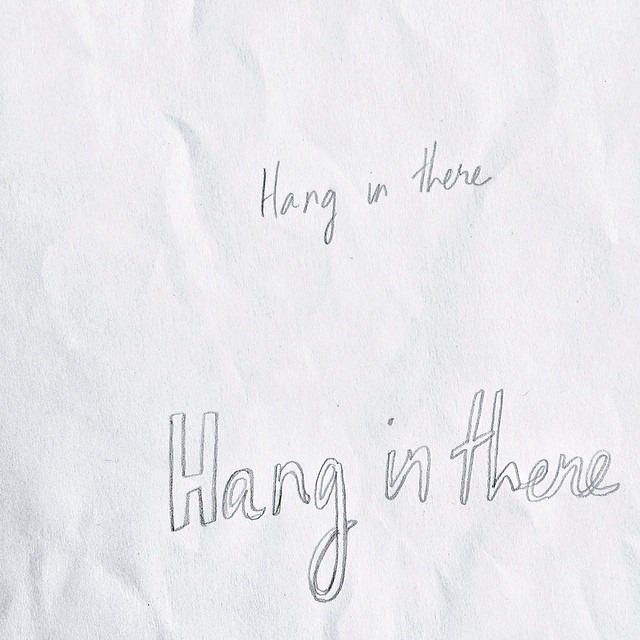 Hang in there
Hang in there